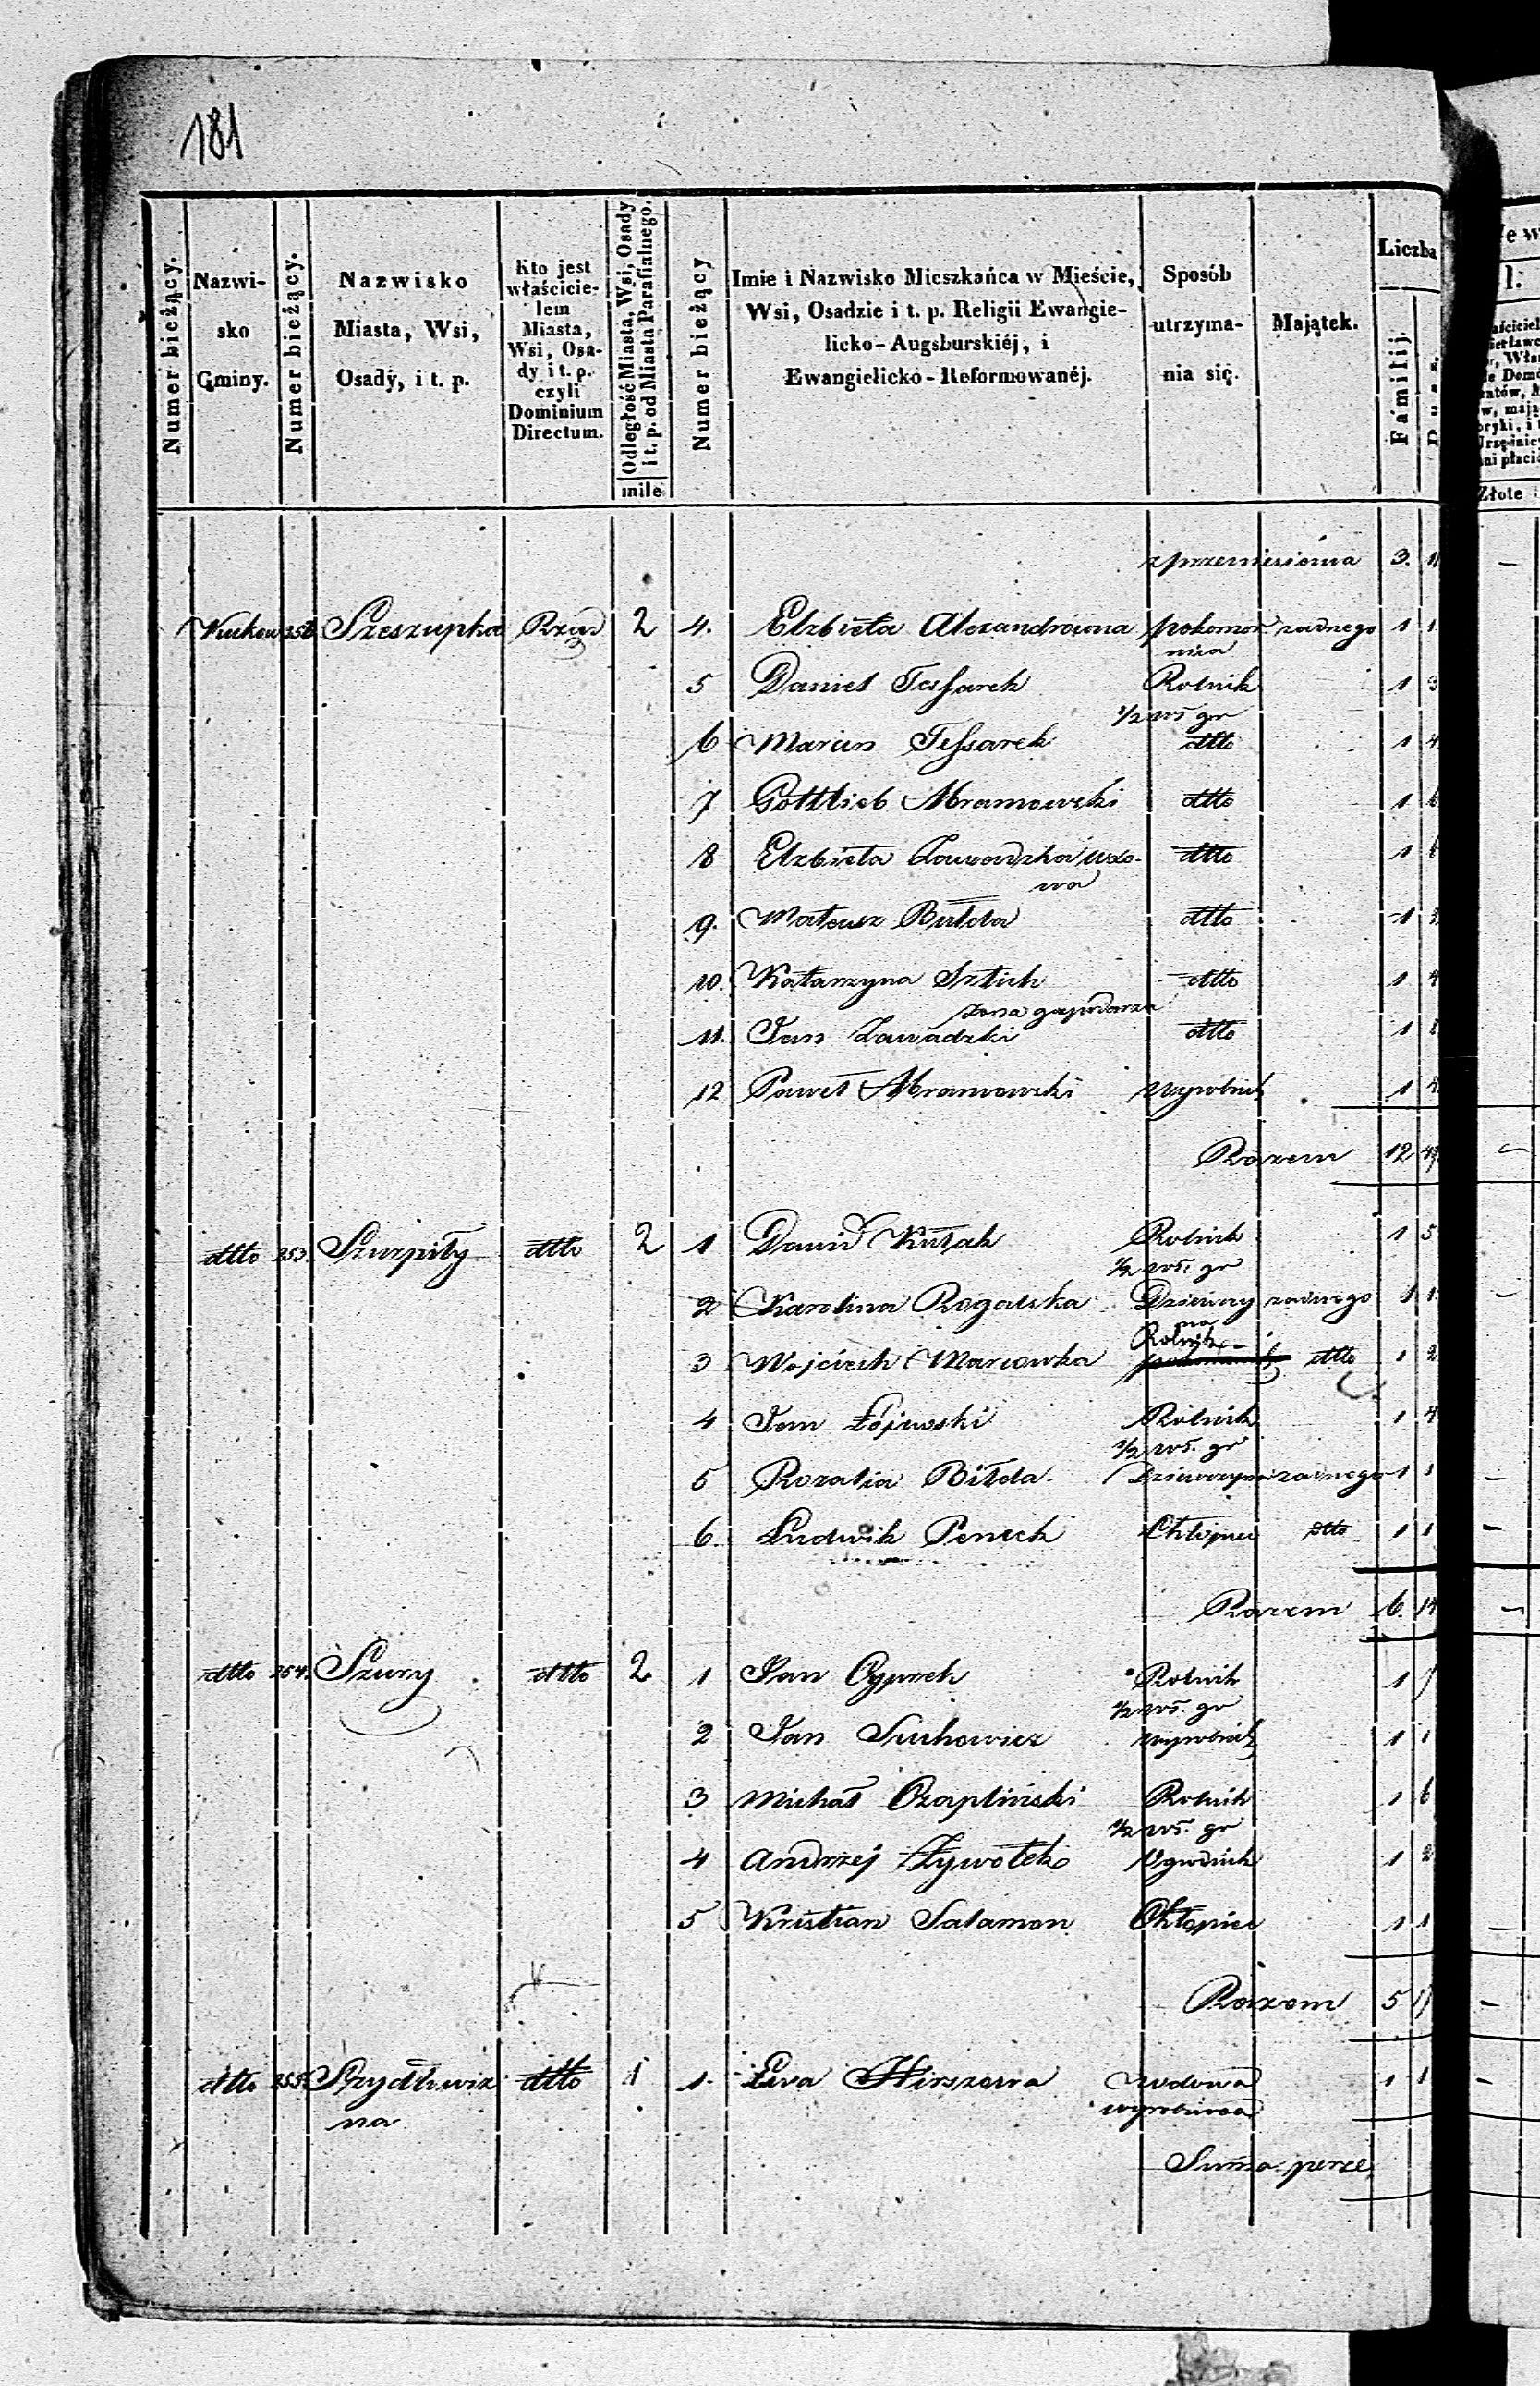 181
Numer bieżący.
Nazwi-
sko
Gminy.
Numer bieżący.
Nazwisko
Miasta, Wsi,
Osady, i t. p.
Kto jest
właścicie-
lem
Miasta,
Wsi, Osa-
dy i t. p.
czyli
Dominium
Directum.
Odległość Miasta, Wsi, Osady
i t. p. od Miasta Parafialnego.
mile
Numer bieżący
Imie i Nazwisko Mieszkańca w Mieście,
Wsi, Osadzie i t. p. Religii Ewangie-
licko-Augsburskiéj, i
Ewangielicko-Reformowanéj.
Sposób
utrzyma-
nia się.
Majątek.
Liczba
Familij.
z przeniesienia 3.
Szeszupka Rząd 2 4. Elzbieta Alexandrowna pokomor- zadnego 1 1
nica
5 Daniel Tessarek Rolnik 1 3
1/2 wł gr
6 Marcin Tessarek dtto 1 4
7 Gottlieb Abramowski dtto 1 6
8 Elzbieta Zawadzka wdo- dtto 1
wa
9. Mateusz Bułda dtto 1
10. Katarzyna Sztich dtto 1 4
zona gospodarza
11. Jan Zawadzki dtto 1
12 Paweł Abramowski wyrobnik 1
Razem 12
dtto 253. Szurpiły dtto 2 1 Dawid Kułak Rolnik 1 5
1/2 wł. gr
2 Karolina Rogalska Dziewczy zadnego 1 1
na
Rolnik
3 Wojciech Marcowka dtto 1 2
4 Jan Łojewski Rolnik 1 4
1/2 wł. gr
5 Rozalia Biłda Dziewczyna zadnego 1 1
6. Ludwik Penick Chłopiec dtto 1 1
Razem 6. 14
dtto 254. Szury dtto 2 1 Jan Cyprek Rolnik 1 7
1/2 wł. gr
2 Jan Suchowicz wyrobnik 1 1
3 Michał Czapliński Rolnik 1 6
1/2 wł. gr
4 Andrzej Zywolek Ogrodnik 1 2
5 Kristian Salamon Chłopiec 1 1
Razem 5 17
dtto 255. Szydłowiz dtto 1 1. Ewa Hirszowa wdowa 1 1
na wyrobnica
Suma perze